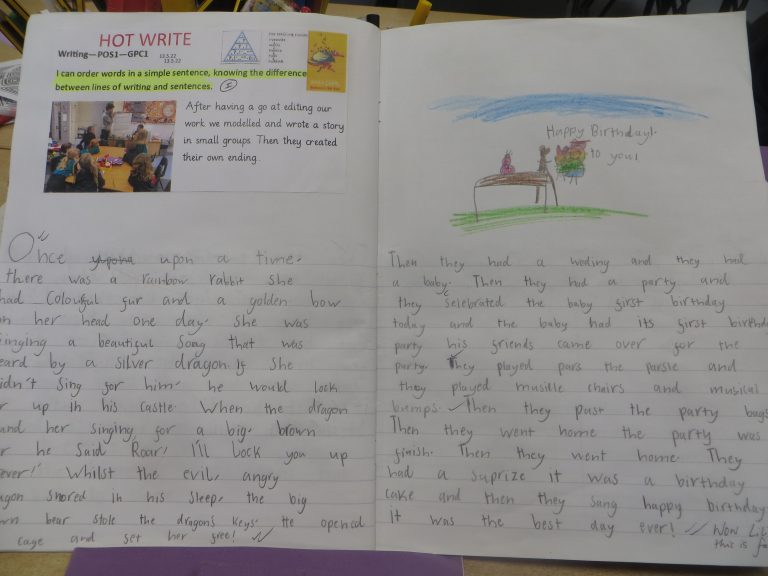 HOT WRITE
Writing—POS1—GPC1
13.5.22
I can order words in a simple sentence, knowing the difference
between lines of writing and sentences.
After having a go at editing our
work we modelled and wrote a story
in small groups. Then they created
their own ending.
Once upon a time.
there was a rainbow rabbit she
had Colourful fur and a golden bow
on her head one day. She was
singing a beautiful Song that was
heard by a silver dragon. If she
didn't Sing for him. he would lock
her up in his castle. When the dragon
her singing, for a big brown
he Said Roar! I'll Lock you up
ever!" Whilst the evil, angry
dragon snored in his sleep, the big
brown bear stole the dragon's keys. He opened
cage and set her free!
Happy Birthday!
to you!
Then they had a weding and they had
a baby. Then they had a party and
they selebrated the baby first birthday
today and the baby had its first birthday
party his friends came over for the
party. They played pars the parsle and
they played musille chairs and musical
bumps. Then they past the party bags
Then they went home the party was
finish. Then they went home. They
had a saprize it was a birthday
cake and then they sang happy birthday
it was the best day ever! Wow
this is